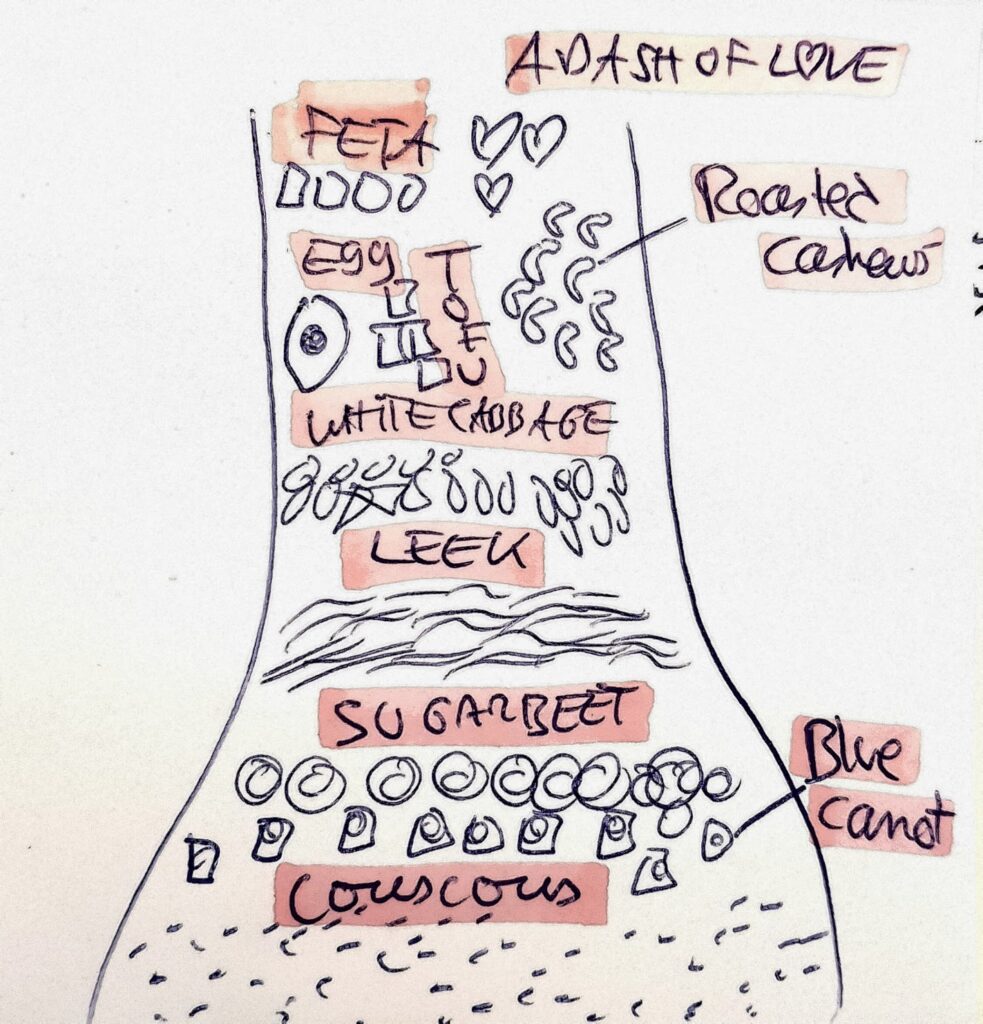 A DASH OF LOVE
FETA
Roasted
Cashews
EGG
TOFU
WHITE CABBAGE
LEEK
SUGARBEET
Blue
Carrot
couscous